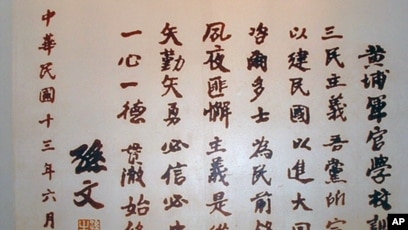 黃埔軍官學校訓
三民主義吾黨所宗
以建民國以進大同
咨爾多士為民前鋒
夙夜匪懈主義是從
矢勤矢勇必信必忠
一心一德貫徹始終
孫文
中華民國十三年六月
AP